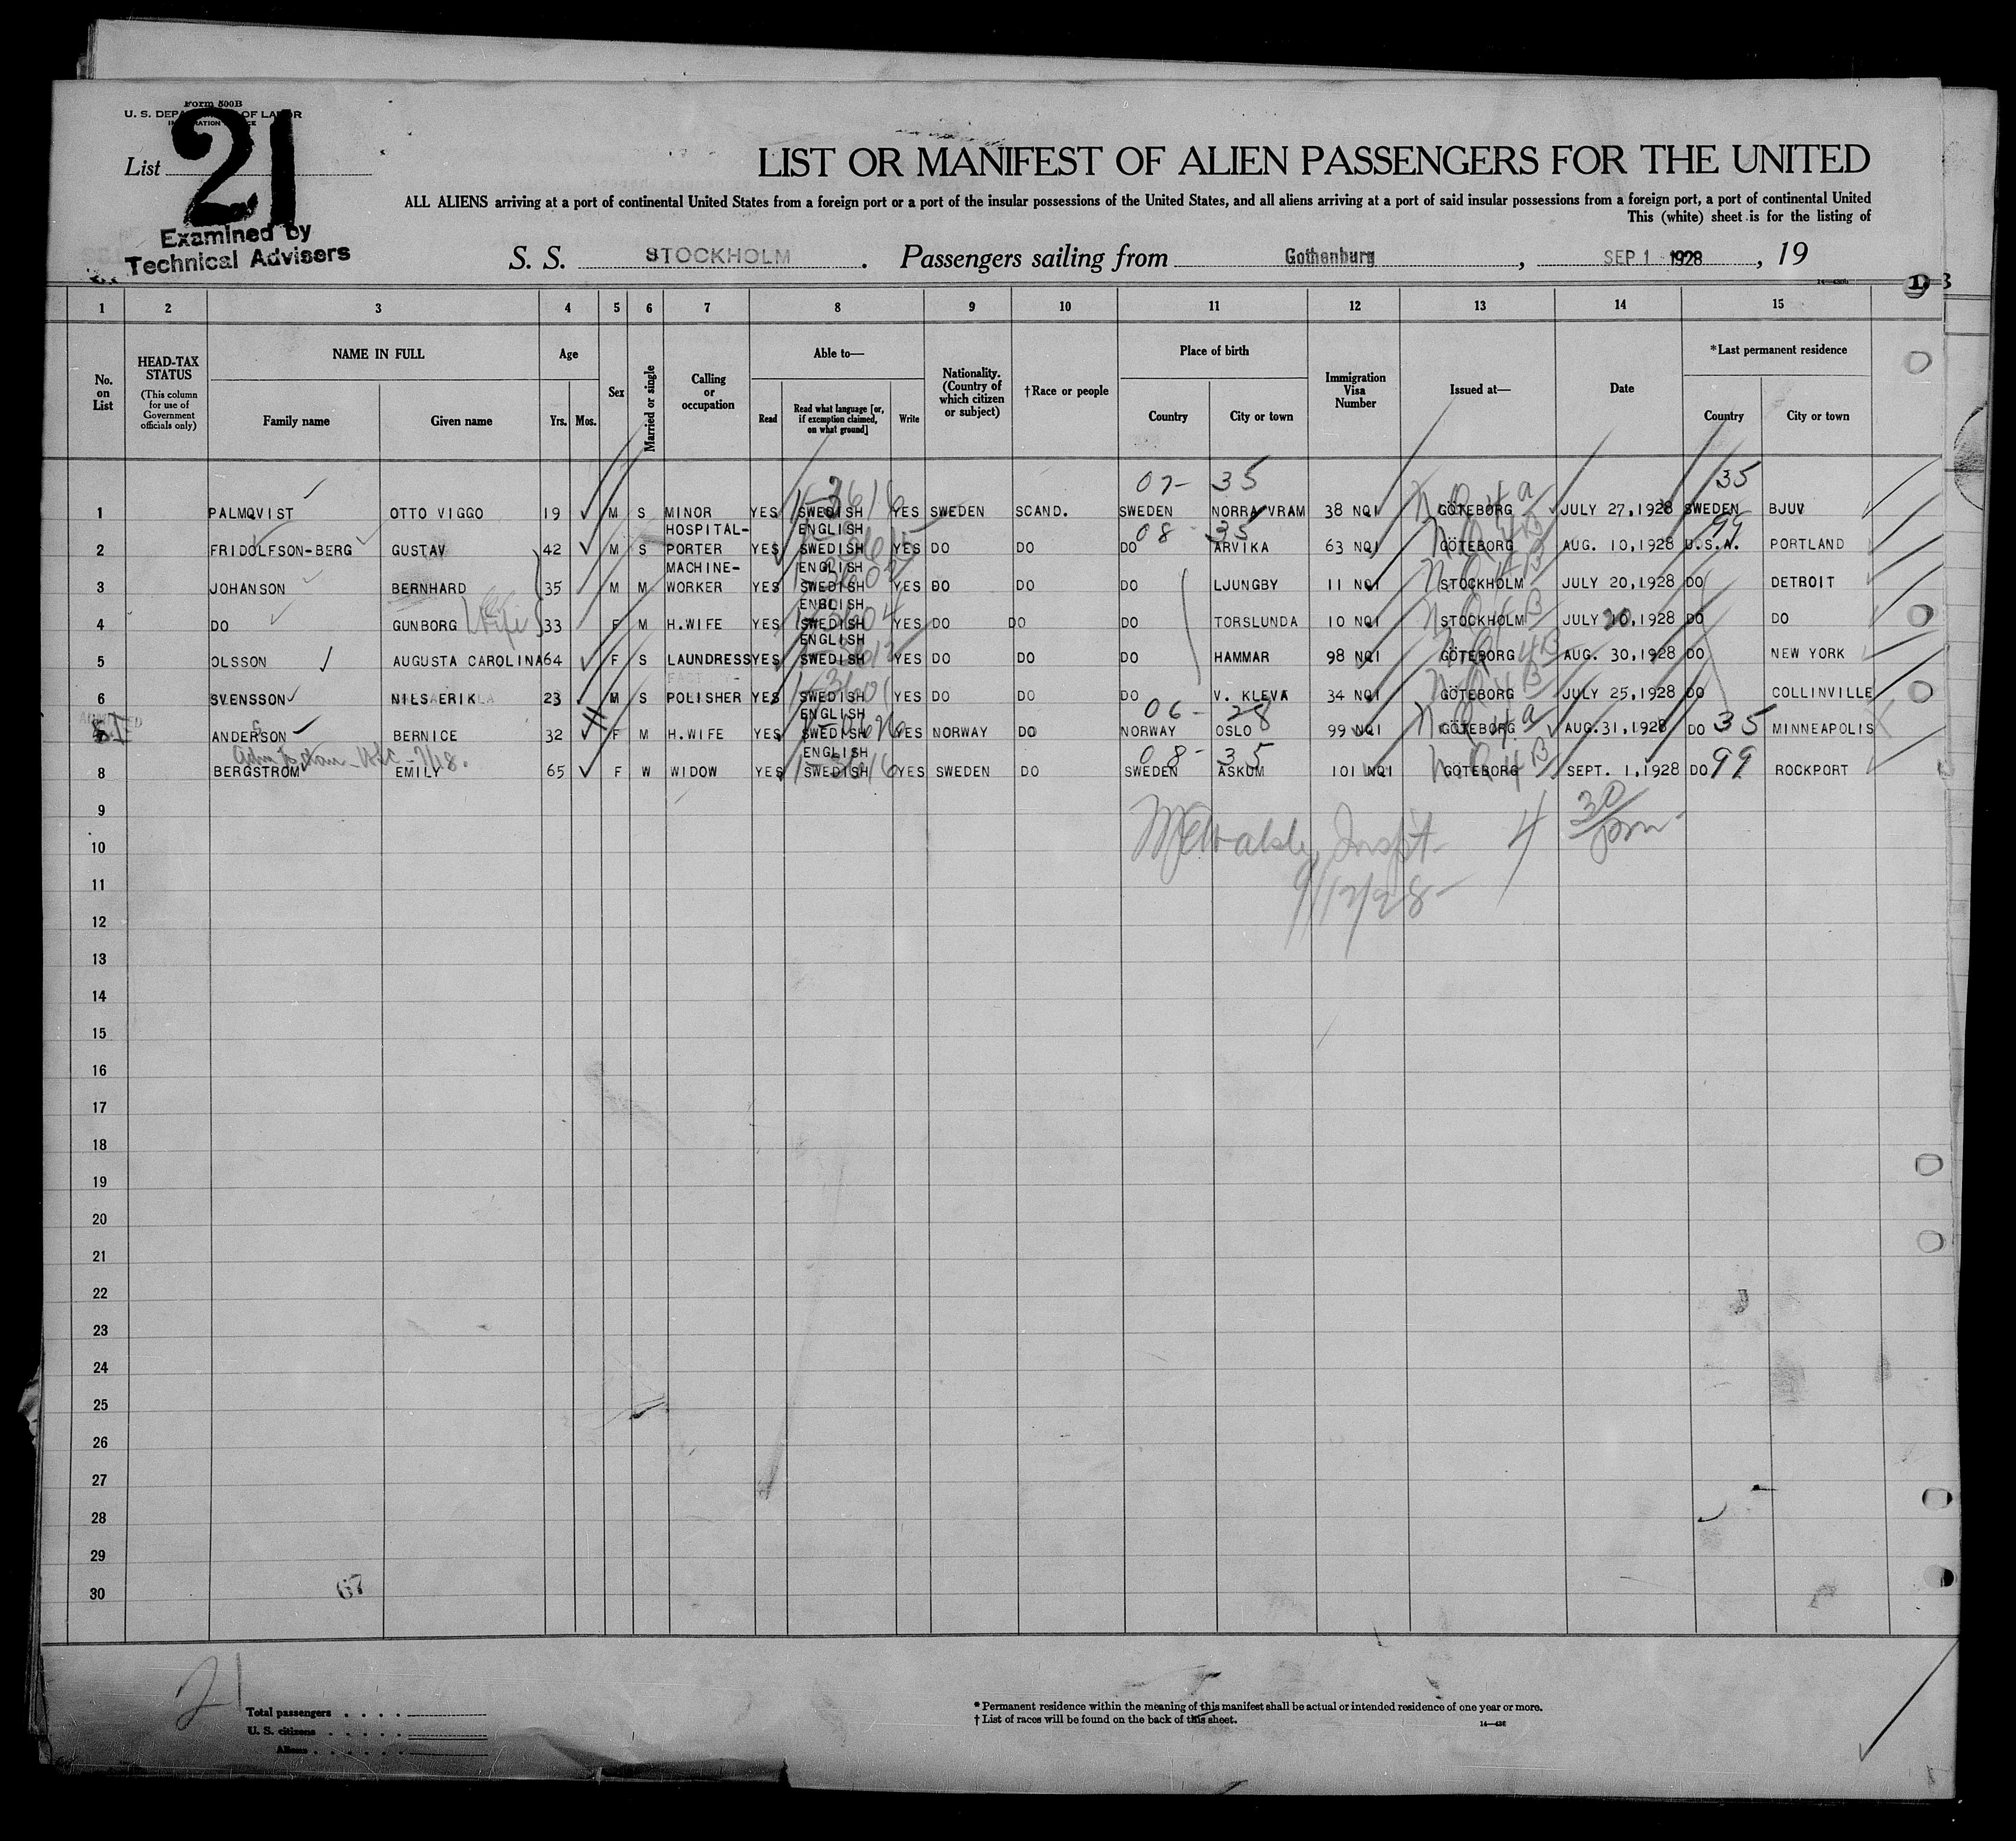 Form 500B
U. S. DEPA OF LABOR
List 21
Examined by
Technical Advisers
LIST OR MANIFEST OF ALIEN PASSENGERS FOR THE UNITED
ALL ALIENS arriving at a port of continental United States from a foreign port or a port of the insular possessions of the United States, and all aliens arriving at a port of said insular possessions from a foreign port, a port of continental United
This (white) sheet is for the listing of
S. S. STOCKHOLM . Passengers sailing from Gothenburg , SEP 1 1928 , 19
1 2 3 4 5 6 7 8 9 10 11 12 13 14 15
No. on List
HEAD-TAX STATUS
(This column for use of Government officials only)
NAME IN FULL
Family name Given name
Age
Yrs. Mos.
Sex
Married or single
Calling or occupation
Able to—
Read Read what language [or, if exemption claimed, on what ground] Write
Nationality. (Country of which citizen or subject)
†Race or people
Place of birth
Country City or town
Immigration Visa Number
Issued at—
Date
*Last permanent residence
Country City or town
07- 35 35
1 PALMQVIST OTTO VIGGO 19 M S MINOR YES SWEDISH YES SWEDEN SCAND. SWEDEN NORRA VRAM 38 NQI GÖTEBORG JULY 27,1928 SWEDEN BJUV
HOSPITAL- ENGLISH 08- 35 99
2 FRIDOLFSON-BERG GUSTAV 42 M S PORTER YES SWEDISH YES DO DO DO ARVIKA 63 NQI GÖTEBORG AUG. 10,1928 U.S.A. PORTLAND
MACHINE- ENGLISH
3 JOHANSON BERNHARD 35 M M WORKER YES SWEDISH YES DO DO DO LJUNGBY 11 NQI STOCKHOLM JULY 20,1928 DO DETROIT
ENGLISH
4 DO GUNBORG Wife 33 F M H.WIFE YES SWEDISH YES DO DO DO TORSLUNDA 10 NQI STOCKHOLM JULY 20,1928 DO DO
ENGLISH
5 OLSSON AUGUSTA CAROLINA 64 F S LAUNDRESS YES SWEDISH YES DO DO DO HAMMAR 98 NQI GÖTEBORG AUG. 30,1928 DO NEW YORK
6 SVENSSON NILS ERIK 23 M S POLISHER YES SWEDISH YES DO DO DO V. KLEVA 34 NQI GÖTEBORG JULY 25,1928 DO COLLINVILLE
ENGLISH 06- 28
ANDERSON BERNICE 32 F M H.WIFE YES SWEDISH YES NORWAY DO NORWAY OSLO 99 NQI GÖTEBORG AUG.31,1928 DO 35 MINNEAPOLIS
ENGLISH 08- 35
8 BERGSTROM EMILY 65 F W WIDOW YES SWEDISH YES SWEDEN DO SWEDEN ASKUM 101 NQI GÖTEBORG SEPT. 1,1928 DO 99 ROCKPORT
9
10
11
9/12/28
12
13
14
15
16
17
18
19
20
21
22
23
24
25
26
27
28
29
30
67
21
Total passengers
U. S. citizens
Aliens
* Permanent residence within the meaning of this manifest shall be actual or intended residence of one year or more.
† List of races will be found on the back of this sheet.